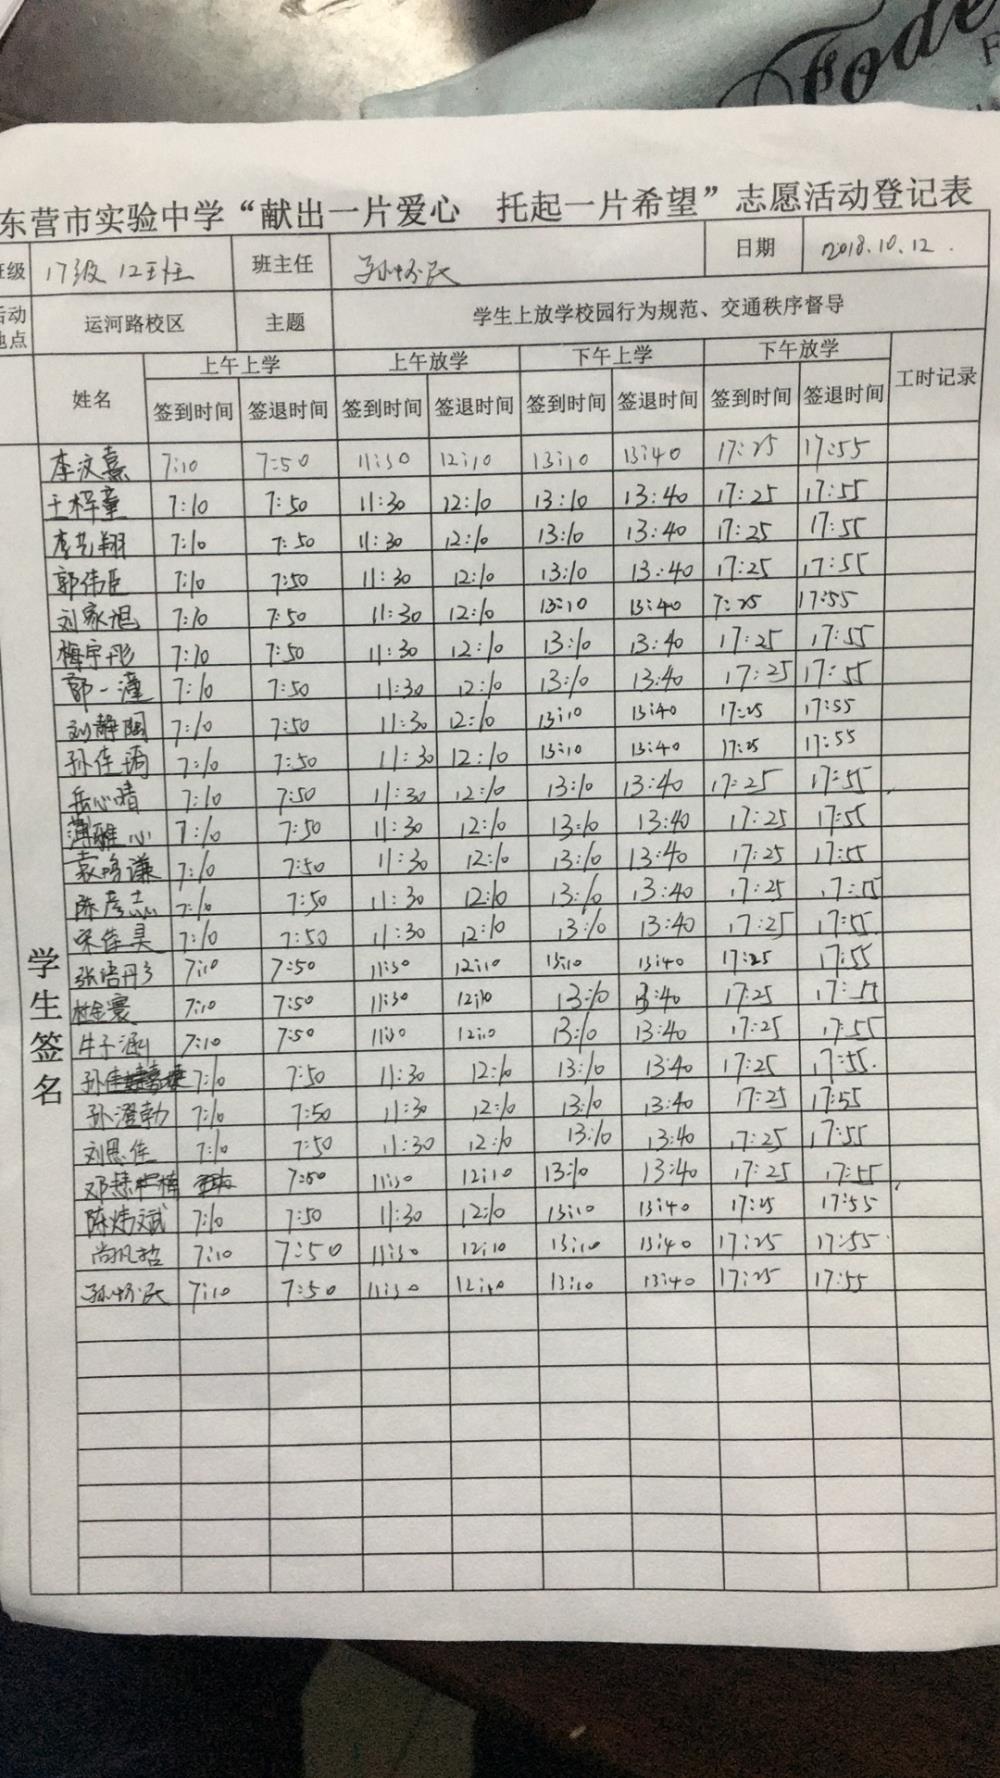 Fode
东营市实验中学“献出一片爱心 托起一片希望”志愿活动登记表
班级 17级 12班 班主任 孙怀民 日期 2018.10.12.
活动地点 运河路校区 主题 学生上放学校园行为规范、交通秩序督导
姓名 上午上学 上午放学 下午上学 下午放学 工时记录
签到时间 签退时间 签到时间 签退时间 签到时间 签退时间 签到时间 签退时间
学生签名
李汶熹 7:10 7:50 11:30 12:10 13:10 13:40 17:25 17:55
王梓童 7:10 7:50 11:30 12:10 13:10 13:40 17:25 17:55
李艺翔 7:10 7:50 11:30 12:10 13:10 13:40 17:25 17:55
郭伟臣 7:10 7:50 11:30 12:10 13:10 13:40 17:25 17:55
刘家旭 7:10 7:50 11:30 12:10 13:10 13:40 7:25 17:55
梅宇彤 7:10 7:50 11:30 12:10 13:10 13:40 17:25 17:55
郭一潼 7:10 7:50 11:30 12:10 13:10 13:40 17:25 17:55
刘静陶 7:10 7:50 11:30 12:10 13:10 13:40 17:25 17:55
孙佳琦 7:10 7:50 11:30 12:10 13:10 13:40 17:25 17:55
岳心晴 7:10 7:50 11:30 12:10 13:10 13:40 17:25 17:55
薄雅心 7:10 7:50 11:30 12:10 13:10 13:40 17:25 17:55
袁鸣谦 7:10 7:50 11:30 12:10 13:10 13:40 17:25 17:55
陈彦志 7:10 7:50 11:30 12:10 13:10 13:40 17:25 17:55
宋佳昊 7:10 7:50 11:30 12:10 13:10 13:40 17:25 17:55
张培丹 7:10 7:50 11:30 12:10 13:10 13:40 17:25 17:55
7:10 7:50 11:30 12:10 13:10 13:40 17:25 17:55
牛子涵 7:10 7:50 11:30 12:10 13:10 13:40 17:25 17:55
孙佳 7:10 7:50 11:30 12:10 13:10 13:40 17:25 17:55.
孙澄勃 7:10 7:50 11:30 12:10 13:10 13:40 17:25 17:55
刘恩佳 7:10 7:50 11:30 12:10 13:10 13:40 17:25 17:55
邓 7:50 11:30 12:10 13:10 13:40 17:25 17:55
陈炜斌 7:10 7:50 11:30 12:10 13:10 13:40 17:25 17:55
尚凯哲 7:10 7:50 11:30 12:10 13:10 13:40 17:25 17:55
孙怀民 7:10 7:50 11:30 12:10 13:10 13:40 17:25 17:55